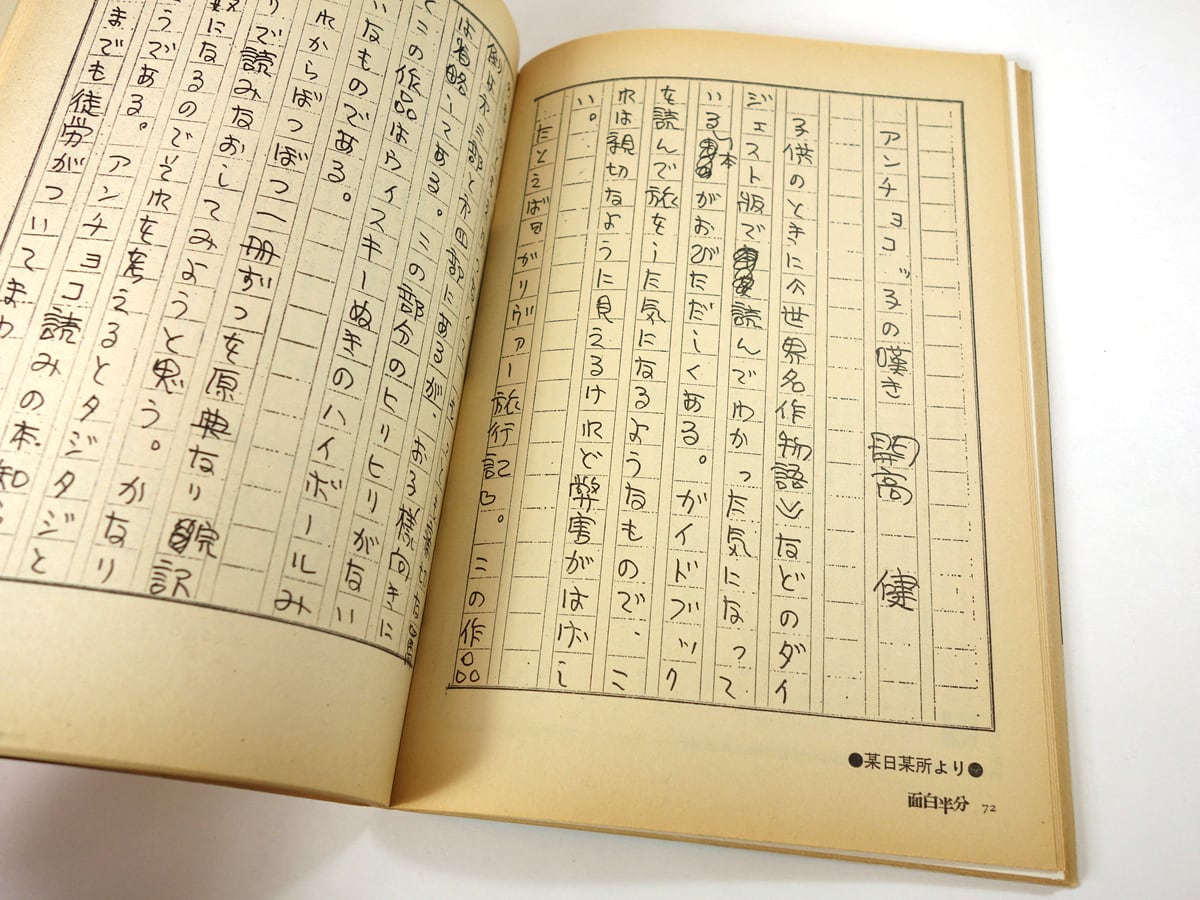 アンチョコッ子の嘆き 開高 健
子供のときに〈世界名作物語〉などのダイ
ジェスト版で読んでわかった気になって
いる本がおびただしくある。ガイドブック
を読んで旅をした気になるようなもので、こ
れは親切なように見えるけれど弊害がはげし
い。
たとえば『ガリヴァー旅行記』。この作品
●某日某所より●
面白半分 72
部と第四部にあるが、お子様向きに
は省略してある。この部分のヒリヒリがない
とこの作品はウイスキーぬきのハイボールみ
いなものである。
れからぼつぼつ一冊ずつを原典なり翻訳
りで読みなおしてみようと思う。かなり
数になるのでそれを考えるとタジタジと
うである。アンチョコ読みの本知ら
までも徒労がついてまわ